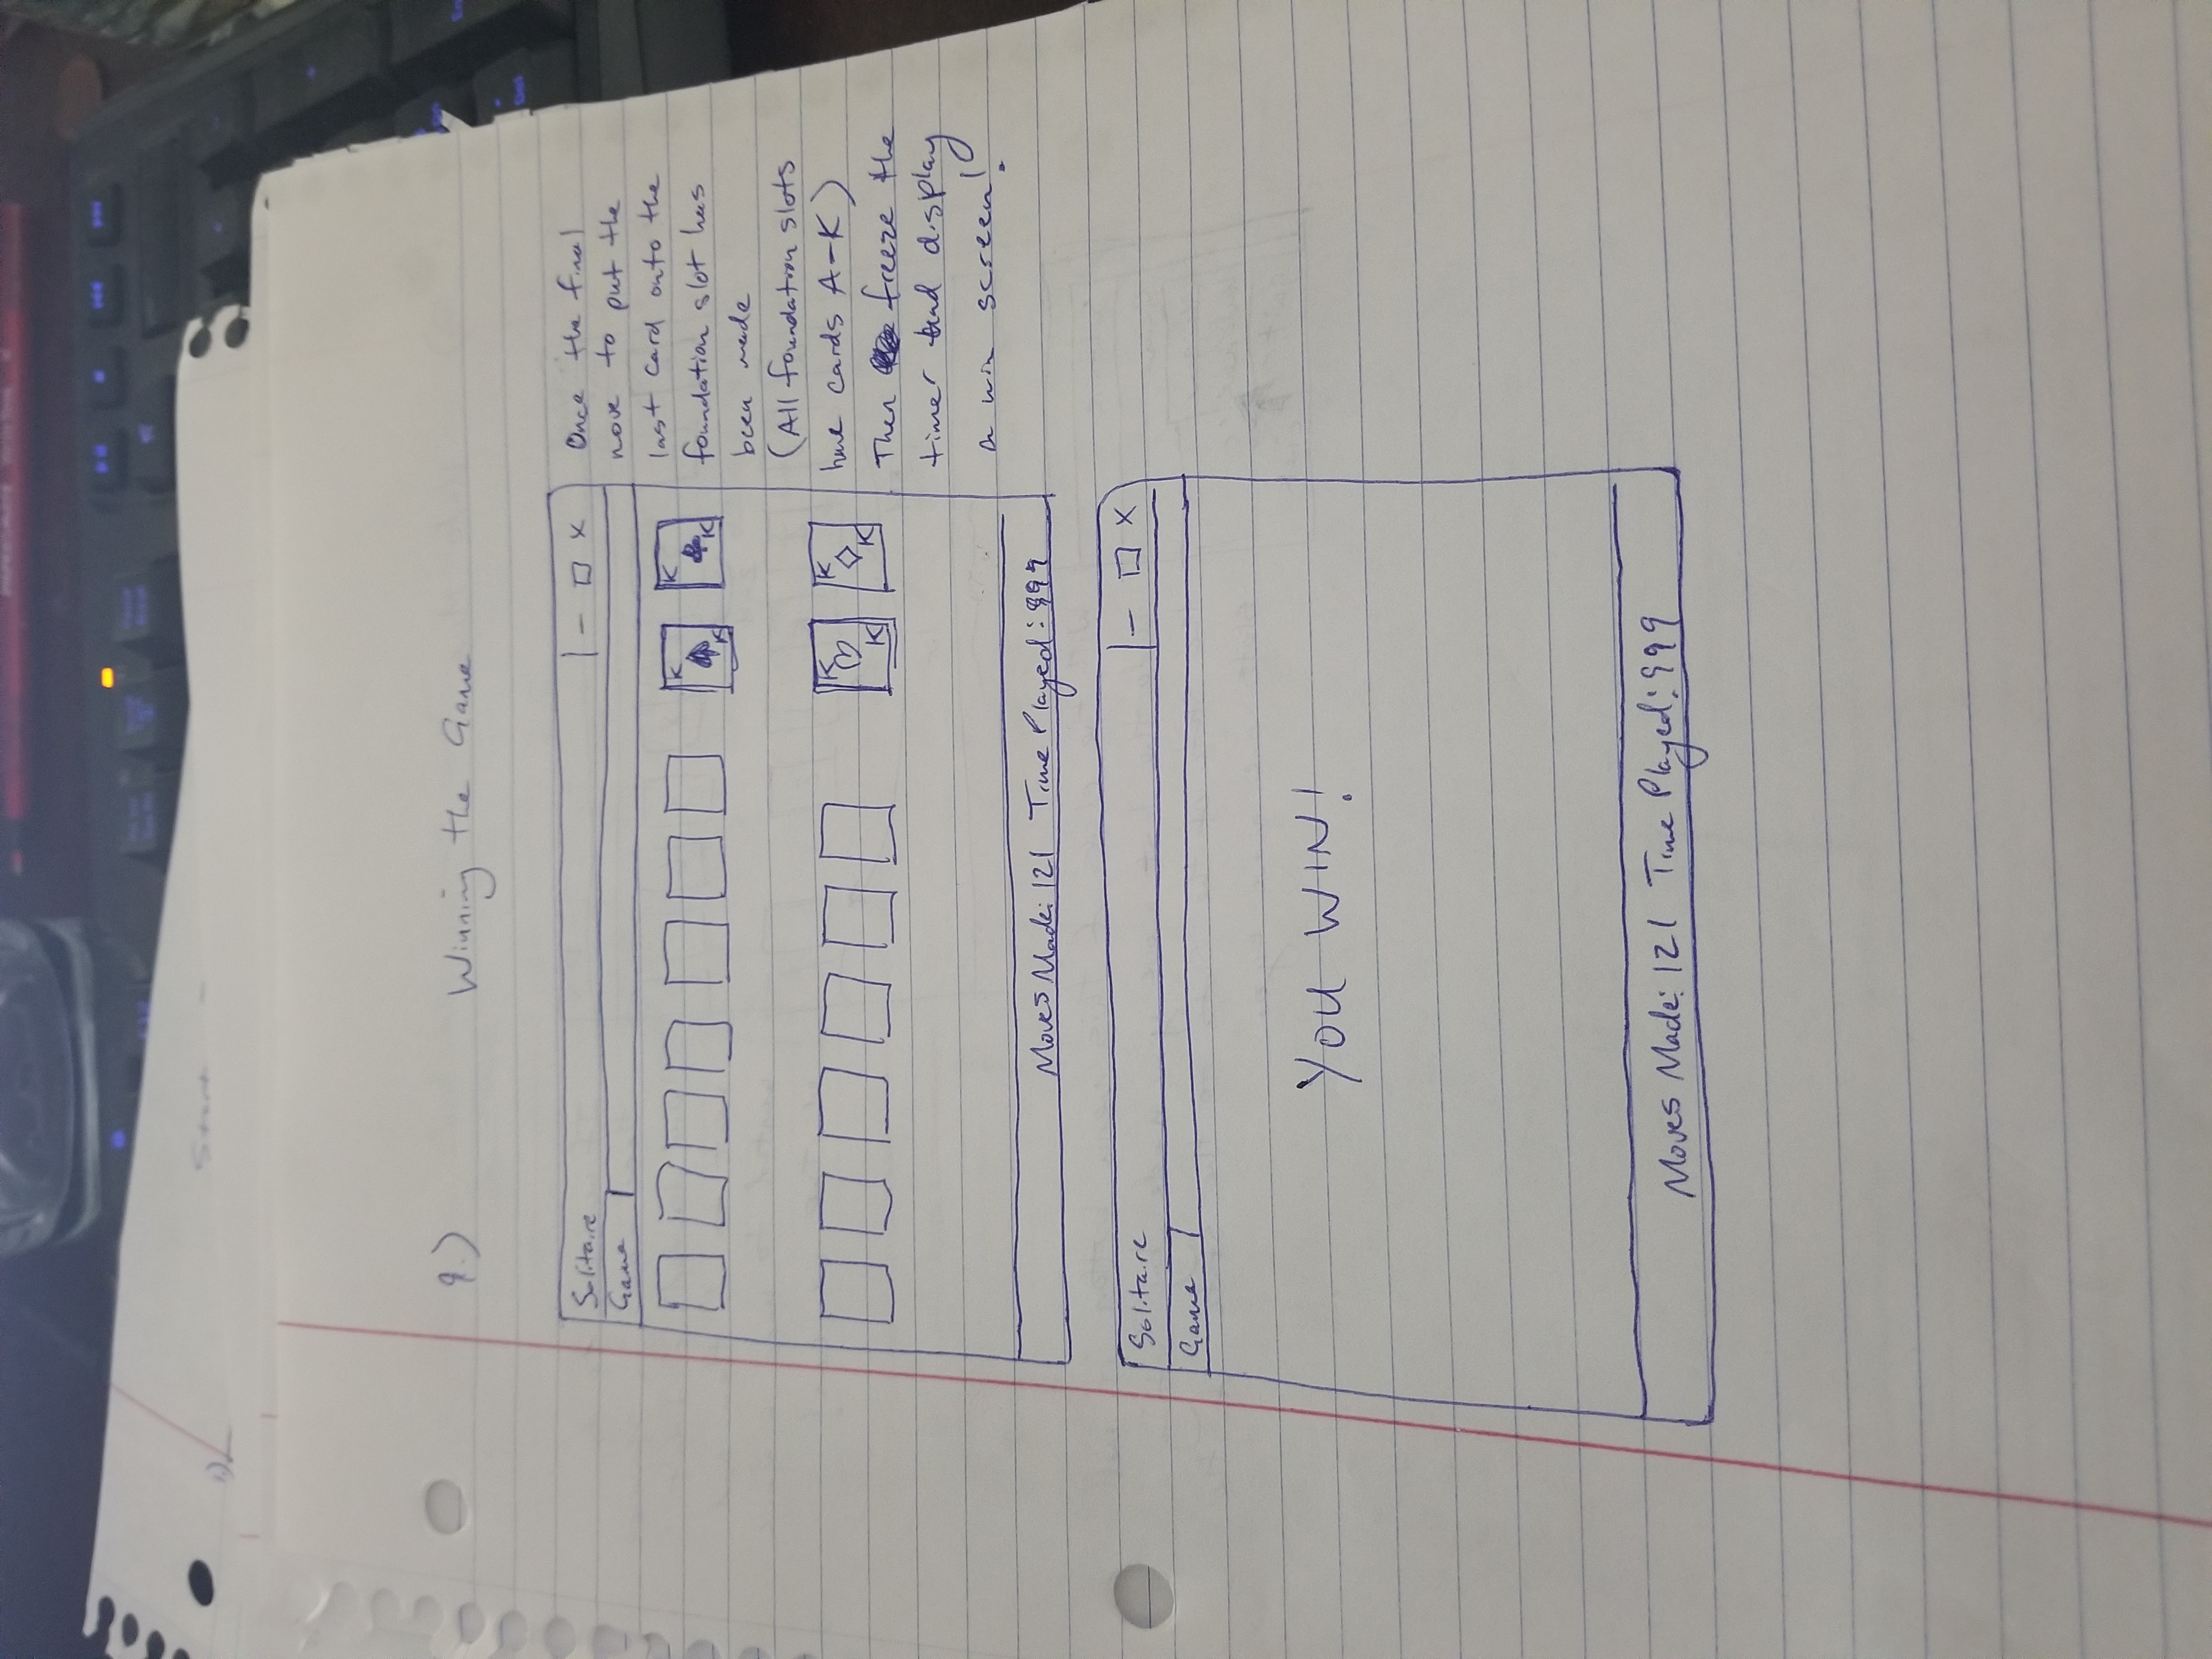 Start
9.) Winning the Game
Solitaire
Game
K K
K K
K K
K K
Moves Made: 121 Time Played: 999
Once the final
move to put the
last card onto the
foundation slot has
been made
(All foundation slots
have cards A-K)
Then freeze the
timer and display
a win screen!
Solitaire
Game
YOU WIN!
Moves Made: 121 Time Played: 999